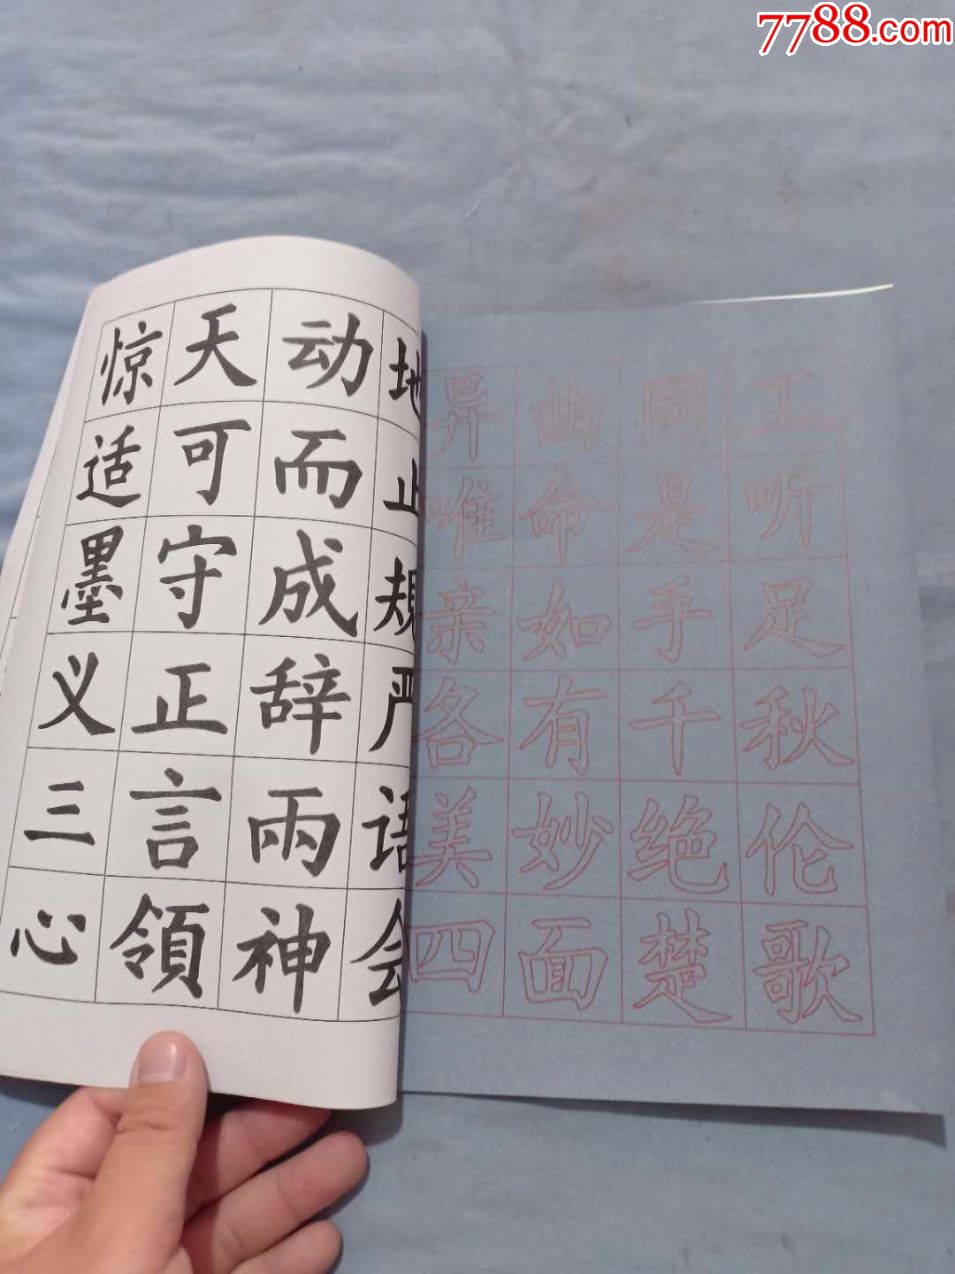 7788.com
惊天动地
适可而止
墨守成规
义正辞严
三言兩语
心領神会
异曲同工
唯命是听
亲如手足
各有千秋
美妙绝伦
四面楚歌